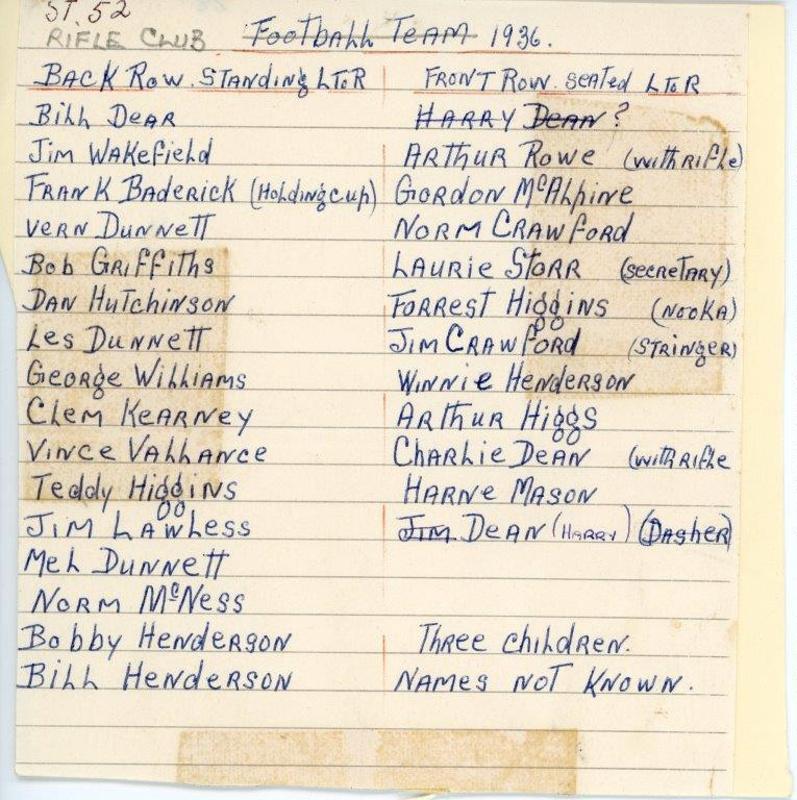 ST. 52
RIFLE CLUB Football Team 1936.
Back Row. Standing L to R
Bill Dear
Jim Wakefield
Frank Baderick (Holding cup)
Vern Dunnett
Bob Griffiths
Dan Hutchinson
Les Dunnett
George Williams
Clem Kearney
Vince Vallance
Teddy Higgins
Jim Lawless
Mel Dunnett
Norm McNess
Bobby Henderson
Bill Henderson
Front Row. seated L to R
Harry Dean ?
Arthur Rowe (with rifle)
Gordon McAlpine
Norm Crawford
Laurie Storr (secretary)
Forrest Higgins (Nooka)
Jim Crawford (Stringer)
Winnie Henderson
Arthur Higgs
Charlie Dean (with rifle
Harne Mason
Jim Dean (Harry) (Dasher)
Three children.
Names not known.